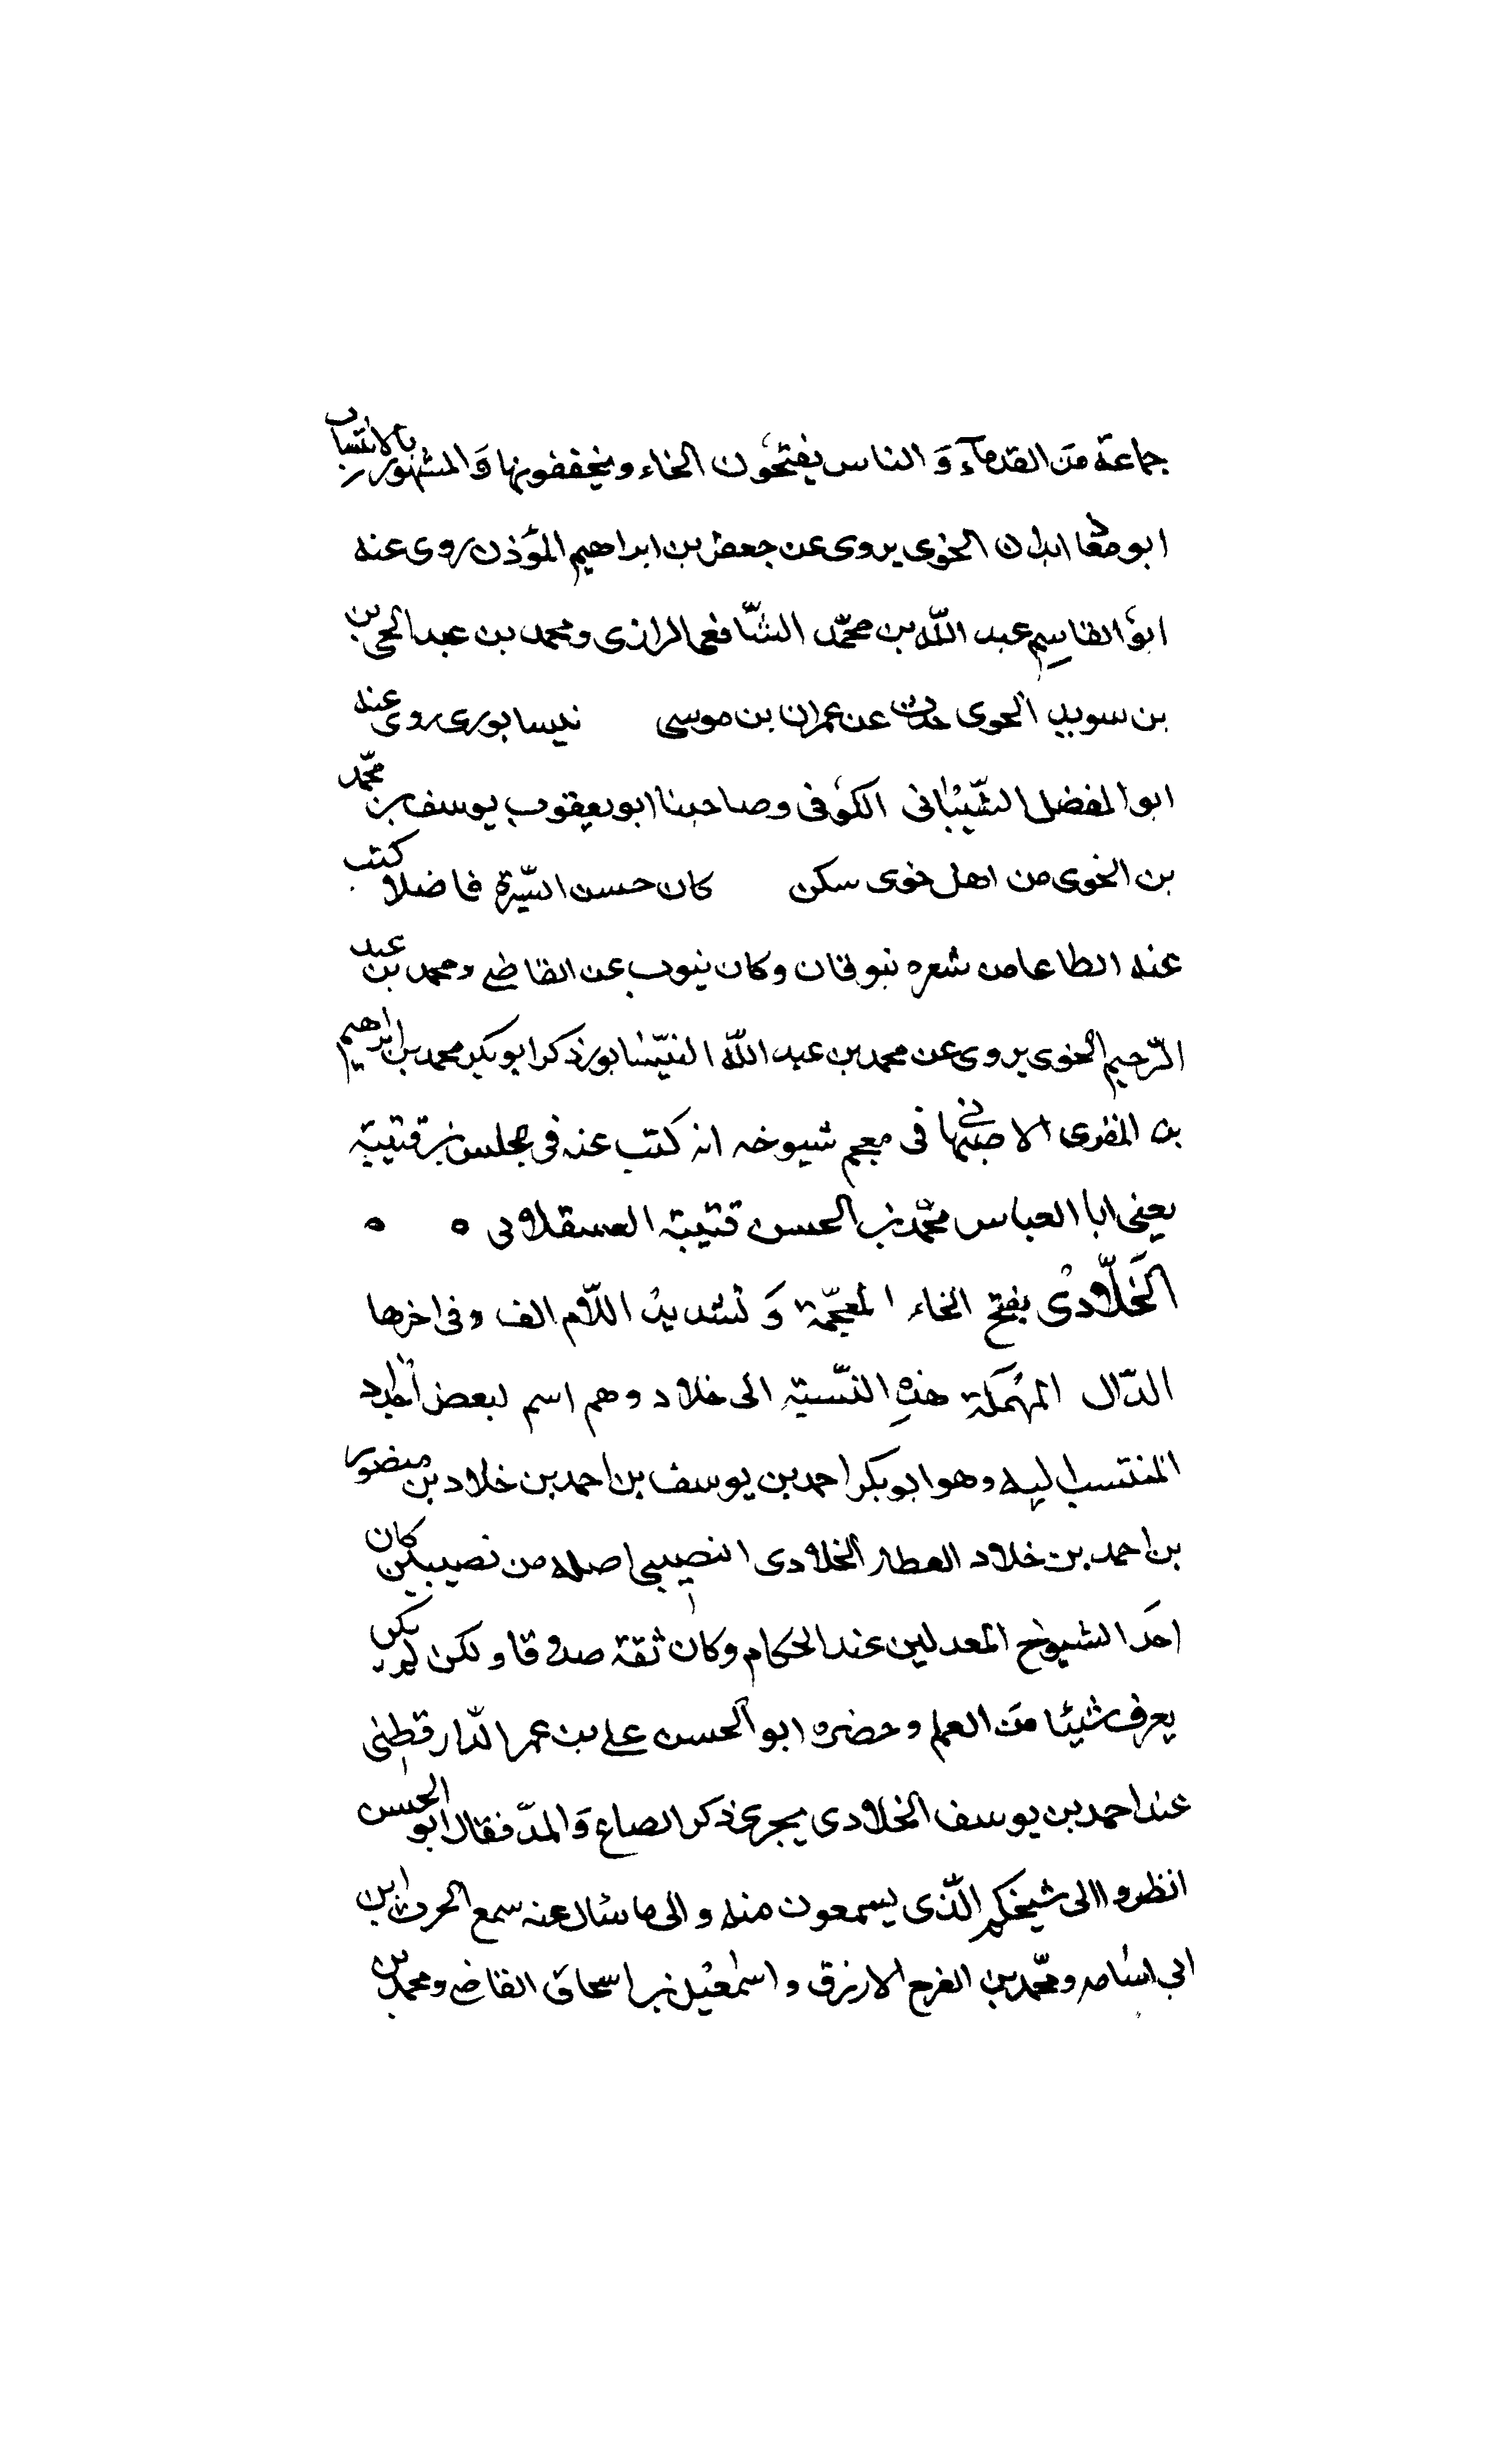 جماعة من القدماء و الناس يفتحون الخاء و يخففونها و المشهور بالانتساب
ابو معاذ الخوى يروى عن جعفر بن ابراهيم المؤذن روى عنه
ابو القاسم عبد الله بن محمد الشافعى الرازى و محمد بن عبد الحى بن
بن سويد الحوى حدث عن عمران بن موسى نيسابورى روى عنه
ابو المفضل الشيبانى الكوفى و صاحبنا ابو يعقوب يوسف بن محمد
بن الخوى من اهل خوى سكن كان حسن السيرة فاضلا كتب
عنه اقطاعا من شعره بنوقان و كان ينوب عن القاضى و محمد بن عبد
الرحيم الخوى يروى عن محمد بن عبد الله النيسابور ذكر ابو بكر محمد بن ابراهيم
بن المقرى الاصبهانى فى معجم شيوخه انه كتب عنه فى مجلس بن قتيبة
يعنى ابا العباس محمد بن الحسن قتيبة العسقلانى ه ه
الخلّادى بفتح الخاء المعجمة و تشديد اللام الف و فى اخرها
الدال المهملة هذه النسبة الى خلاد و هم اسم لبعض اجداد
المنتسب اليه و هو ابو بكر احمد بن يوسف بن احمد بن خلاد بن منصور
بن احمد بن خلاد العطار الخلادى النصيبى اصله من نصيبين كان
احد الشيوخ المعدلين عند الحكام و كان ثقة صدوقا و لكن لم يكن
يعرف شيئا من العلم و حضره ابو الحسن على بن عمر الدارقطنى
عند احمد بن يوسف الخلادى يجرى ذكر الصاع و المد فقال ابو الحسن
انظروا الى شيخكم الذى يسمعون منه و الى ما سئال عنه سمع الحرث ابن
ابى اسامه و محمد بن الفرج الازرق و اسمعيل بن اسحاق القاضى و محمد بن